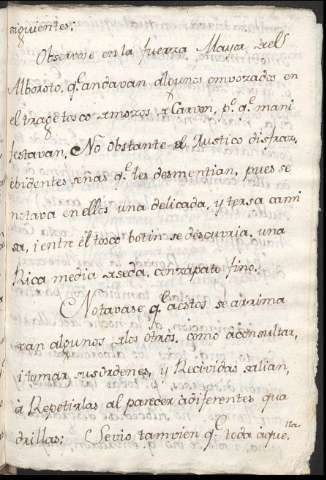 siguientes:
Observose en la fuerza Mayor del
Alboroto, qe. andavan algunos emvozados en
el trage tosco de mozos, q
festavan, No obstante el Rustico disfraz,
evidentes señas qe. les desmentian, pues se
notava en ellos una delicada, y tersa cami
sa, i entre el tosco botin se descuvria, una
Rica media de seda, con zapato fino.
Notavase qe. a estos se arrima
van algunos de los otros, como a consultar,
i tomar sus ordenes, y Recividas salian,
à Repetirlas al parecer a diferentes qua
drillas; Se vio tamvien qe. toda aque
lla